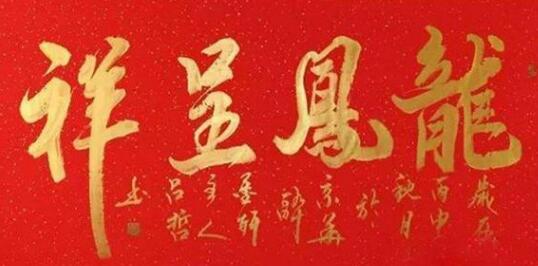 龍鳳呈祥
歲在
丙申
秋月
於
京華
醉
墨軒
主人
呂哲
書